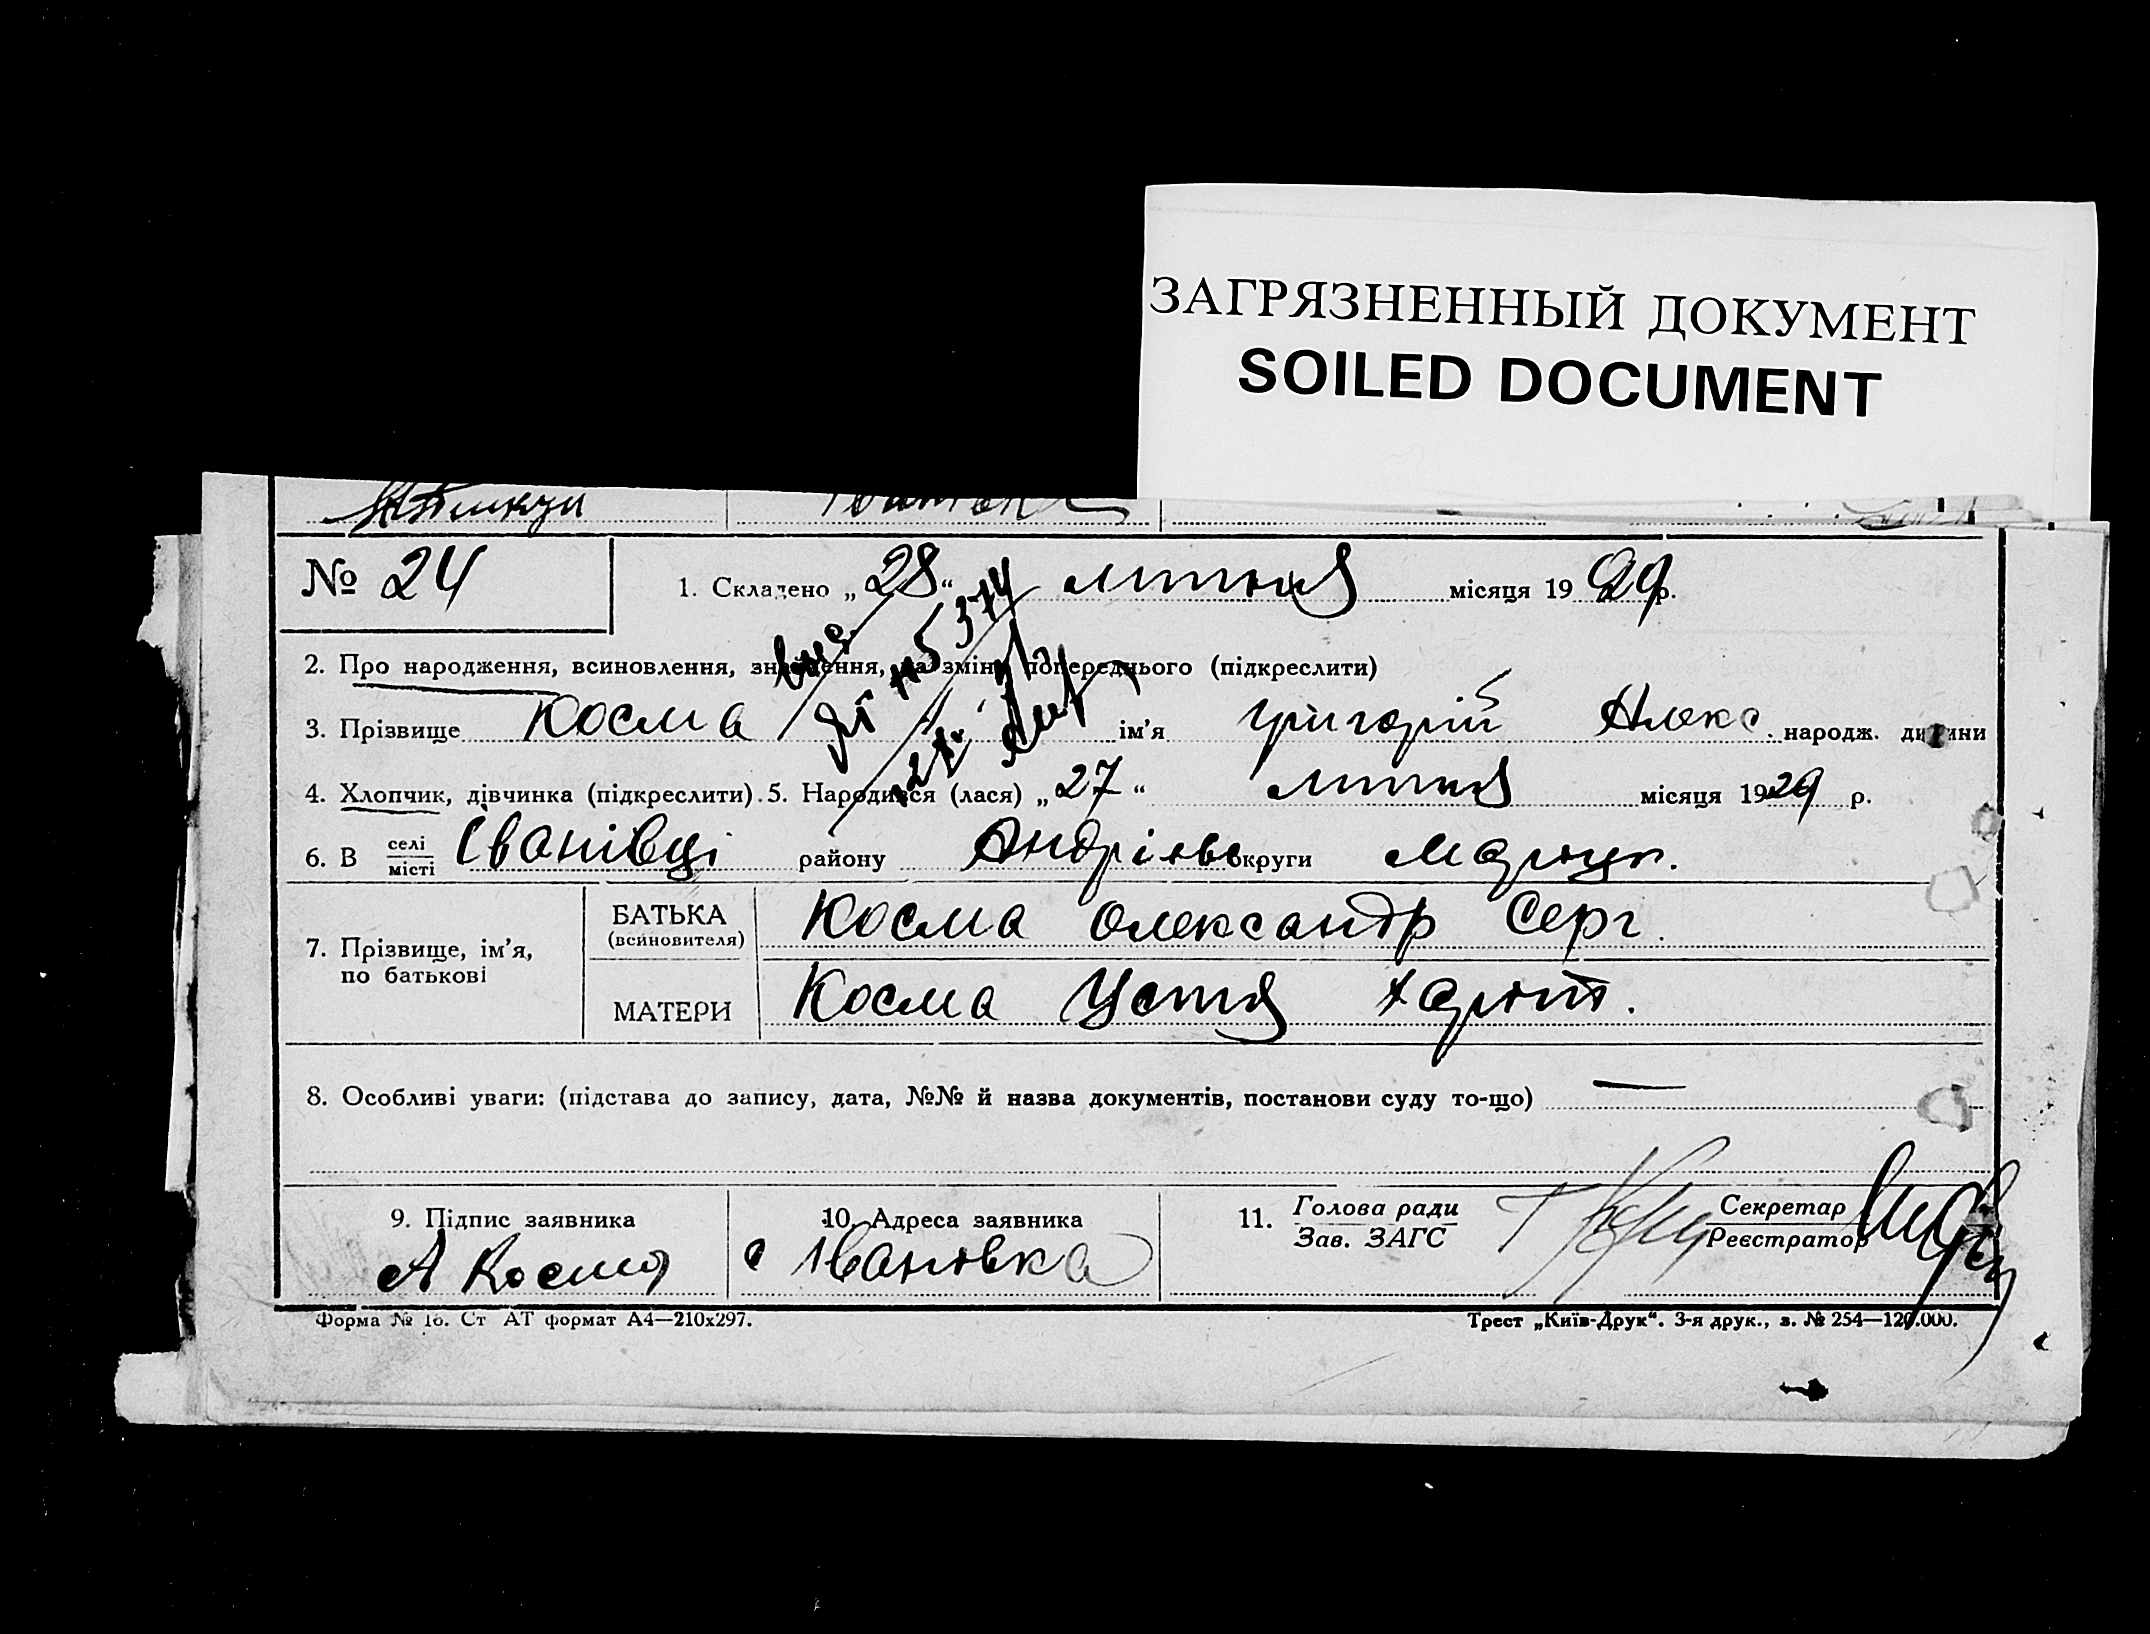 ЗАГРЯЗНЕННЫЙ ДОКУМЕНТ
SOILED DOCUMENT
№ 24
1. Складено „28“ липня місяця 1929 р.
2. Про народження, всиновлення, знайдення, на зміну попереднього (підкреслити)
3. Прізвище Косма ім’я Григорій Алекс. народж. дитини
4. Хлопчик, дівчинка (підкреслити). 5. Народився (лася) „27“ липня місяця 1929 р.
6. В селі/місті Іванівці району Андріївс округи Маріуп.
7. Прізвище, ім’я, по батькові
БАТЬКА (всиновителя) Косма Олександр Серг.
МАТЕРИ Косма Устя Харит.
8. Особливі уваги: (підстава до запису, дата, №№ й назва документів, постанови суду то-що) —
9. Підпис заявника
А Косма
10. Адреса заявника
с Івановка
11. Голова ради
Зав. ЗАГС
Секретар
Реєстратор
Форма № 16. Ст АТ формат А4—210х297.
Трест „Київ-Друк“. 3-я друк., з. № 254—120.000.